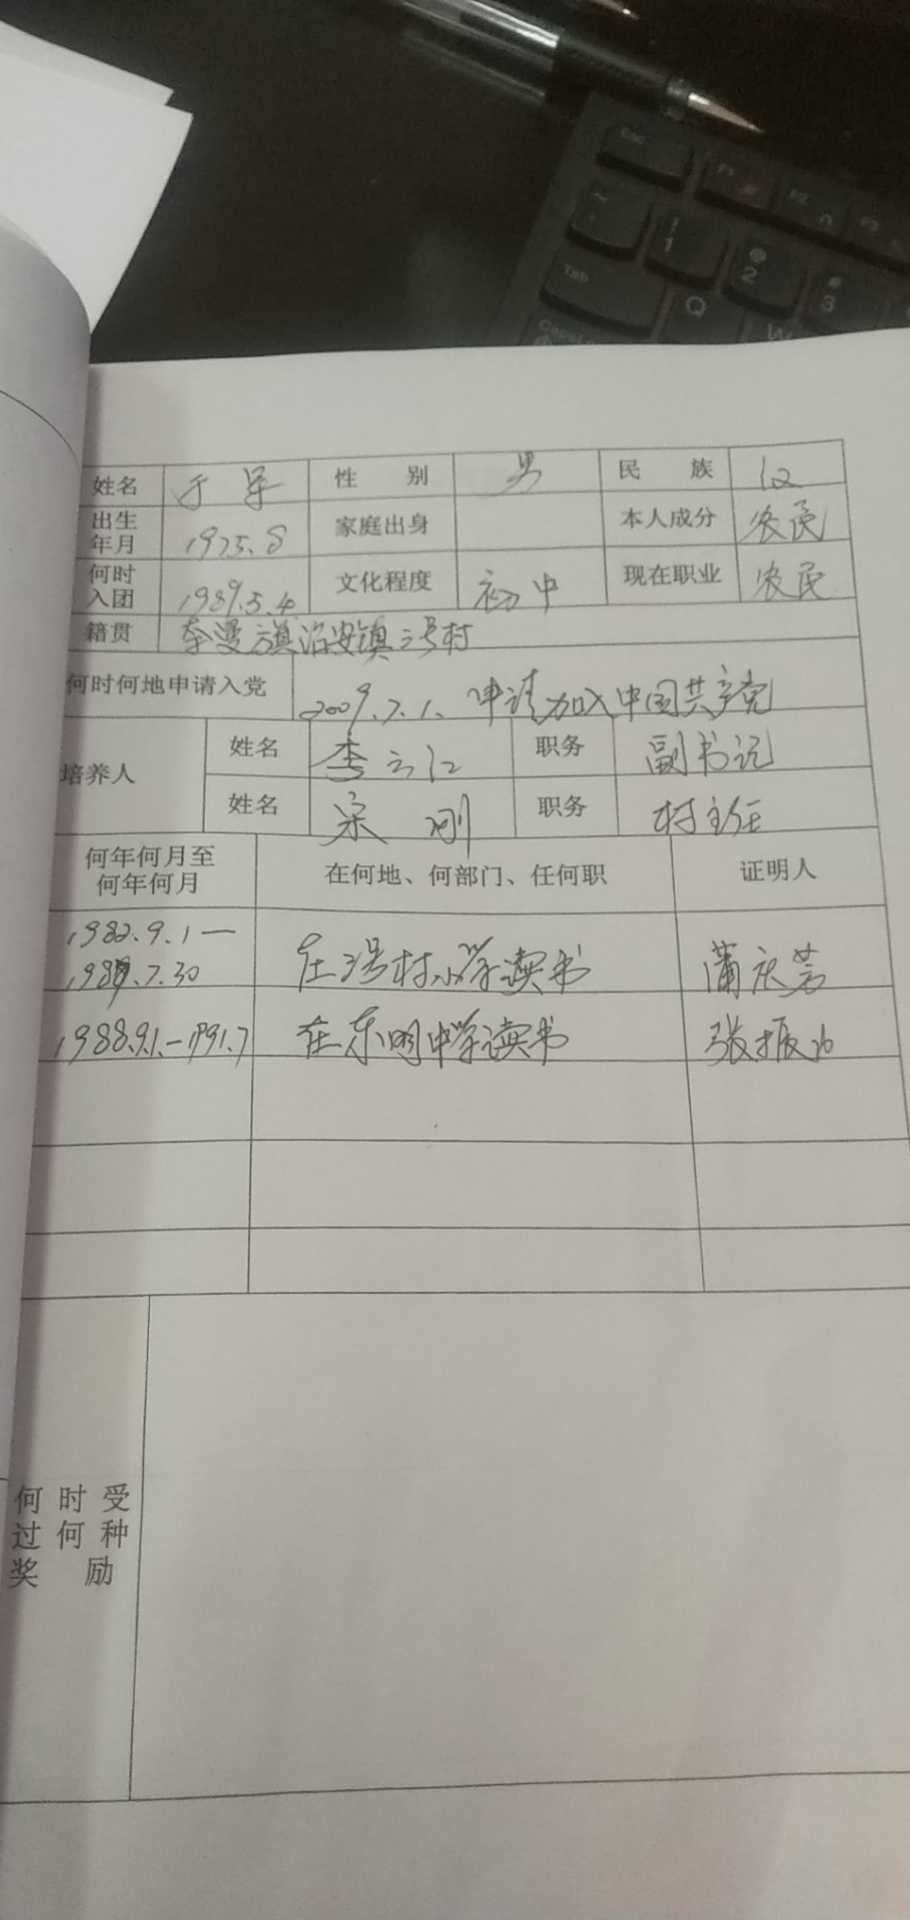 Esc F1 F2 F3
~ ! 1 @ 2 # 3
Tab Q W
CapsL
姓名 于军 性 别 男 民 族 汉
出生年月 1975.8 家庭出身 本人成分 农民
何时入团 1989.5.4 文化程度 初中 现在职业 农民
籍贯 奈曼旗治安镇三号村
何时何地申请入党 2009.7.1. 申请加入中国共产党
培养人 姓名 李云江 职务 副书记
姓名 宋刚 职务 村主任
何年何月至 在何地、何部门、任何职 证明人
何年何月
1982.9.1一 在三号村小学读书 蒲庆芳
.7.30
1988.9.1.-1991.7 在东明中学读书 张振
何时受
过何种
奖 励